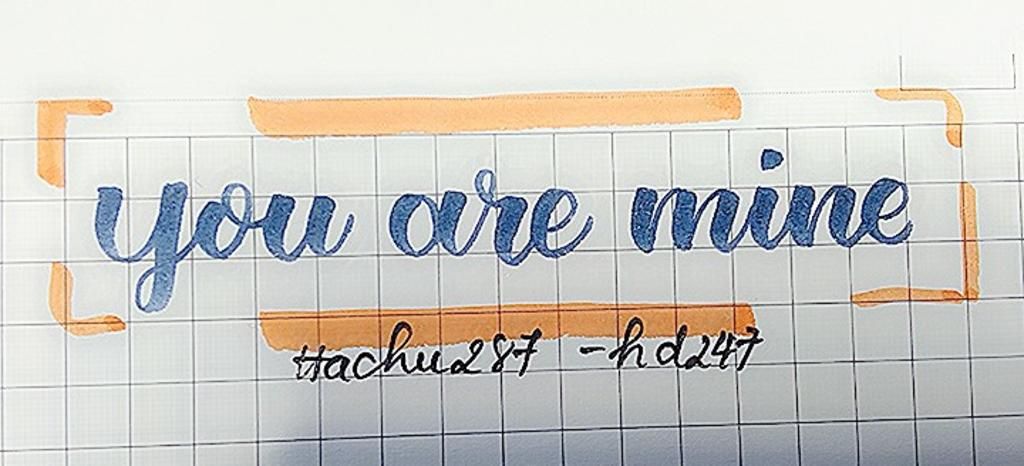 you are mine
Hachu287 -hd247